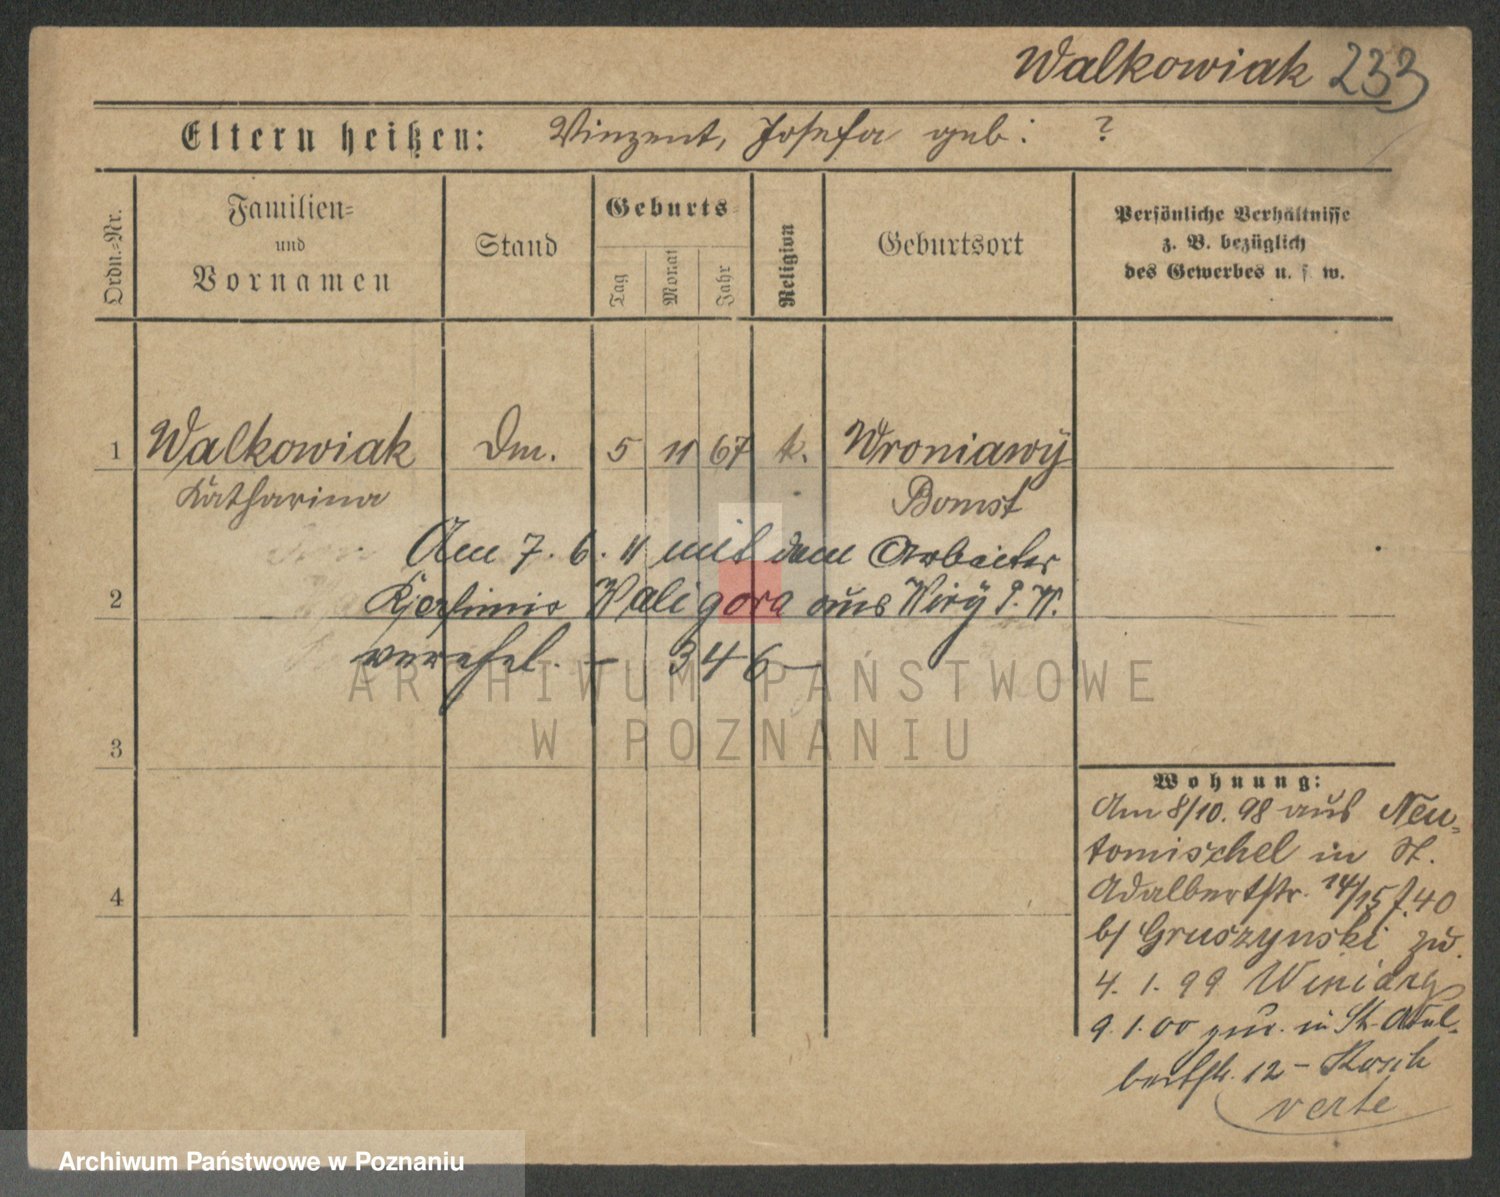 Walkowiak 233
Eltern heißen: Vinzent, Josefa geb: ?
Ordn.=Nr.
Familien=
und
Vornamen
Stand
Geburts=
Tag
Monat
Jahr
Religion
Geburtsort
Persönliche Verhältnisse
z. B. bezüglich
des Gewerbes u. s. w.
1 Walkowiak Dm. 5 11 67 k. Wroniawÿ
Katharina Bomst
Am 7. 6. 11 mit dem Arbeiter
2 Waligora aus Wirÿ P. W.
verehel. – 346 –
3
4
Wohnung:
Am 8/10. 98 aus Neu=
tomischel in St.
Adalbertstr. 14/15 f. 40
b/ Gruszynski zu.
4. 1. 99 Winiary
9. 1. 00 zur. in St. Adal-
bertstr. 12 –
verte
ARCHIWUM PAŃSTWOWE
W POZNANIU
Archiwum Państwowe w Poznaniu